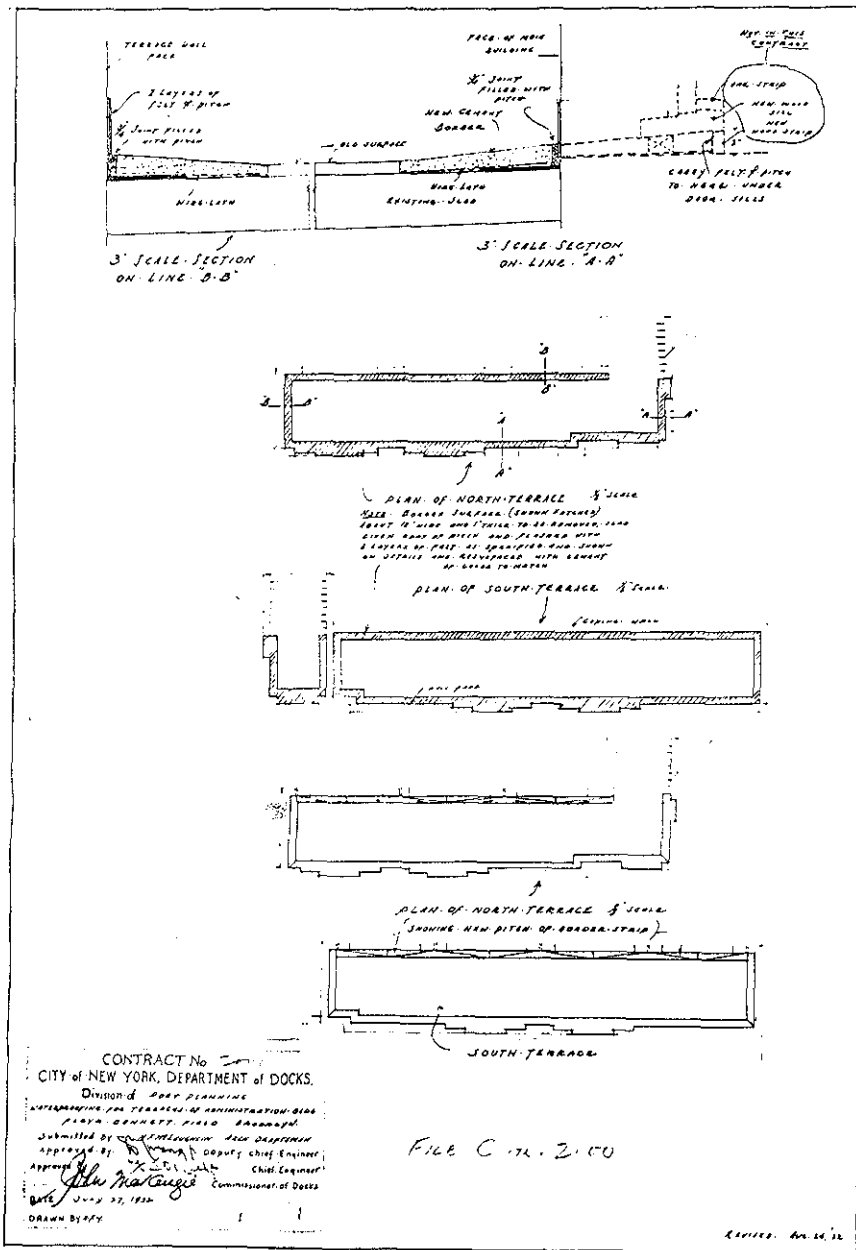 TERRACE WALL
FACE
2 LAYERS OF
FELT & PITCH
JOINT FILLED
WITH PITCH
WIRE LATH
3" SCALE SECTION
ON LINE "B-B"
FACE OF MAIN
BUILDING
JOINT
FILLED WITH
PITCH
NEW CEMENT
BORDER
OLD SURFACE
WIRE LATH
EXISTING SLAB
3" SCALE SECTION
ON LINE "A-A"
NOT IN THIS
CONTRACT
OAK STRIP
NEW WOOD
SILL
NEW
WOOD STRIP
CARRY FELT & PITCH
TO HERE UNDER
DOOR SILLS
B
B'
B B'
A
A'
A A'
PLAN OF NORTH TERRACE 1/8" SCALE
NOTE BORDER SURFACE (SHOWN HATCHED)
ABOUT 12" WIDE AND 1" THICK TO BE REMOVED, SLAB
GIVEN COAT OF PITCH AND FLASHED WITH
2 LAYERS OF FELT AS SPECIFIED AND SHOWN
ON DETAILS AND RESURFACED WITH CEMENT
OF COLOR TO MATCH
PLAN OF SOUTH TERRACE 1/8" SCALE
COPING WALL
PLAN OF NORTH TERRACE 1/8" SCALE
(SHOWING NEW PITCH OF BORDER STRIP)
SOUTH TERRACE
CONTRACT No
CITY of NEW YORK, DEPARTMENT of DOCKS.
Division of PORT PLANNING
WATERPROOFING FOR TERRACES OF ADMINISTRATION BLDG
FLOYD BENNETT FIELD BROOKLYN.
Submitted By McLOUGHLIN ARCH DRAFTSMAN
Approved By Deputy Chief Engineer
Approved Chief Engineer
John McKenzie Commissioner of Docks
DATE JULY 27, 1932
DRAWN BY
FILE C 2.50
REVISED. AUG 24, '32